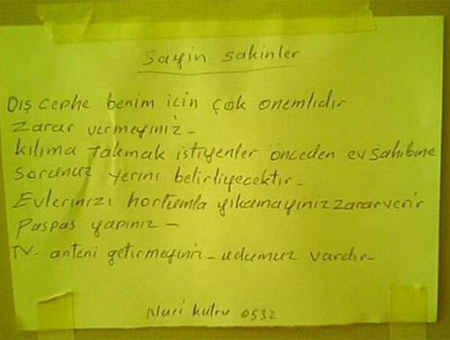 Sayin sakinler
Dış cephe benim için çok önemlidir
Zarar vermeyiniz -
kılıma takmak istiyenler önceden ev sahibine
sorunuz yerini belirliyecektir -
Evlerinizi hortumla yıkamayınız zarar verir
Paspas yapınız -
TV. anteni getirmeyiniz - udumuz vardır -
Nuri kutru 0532